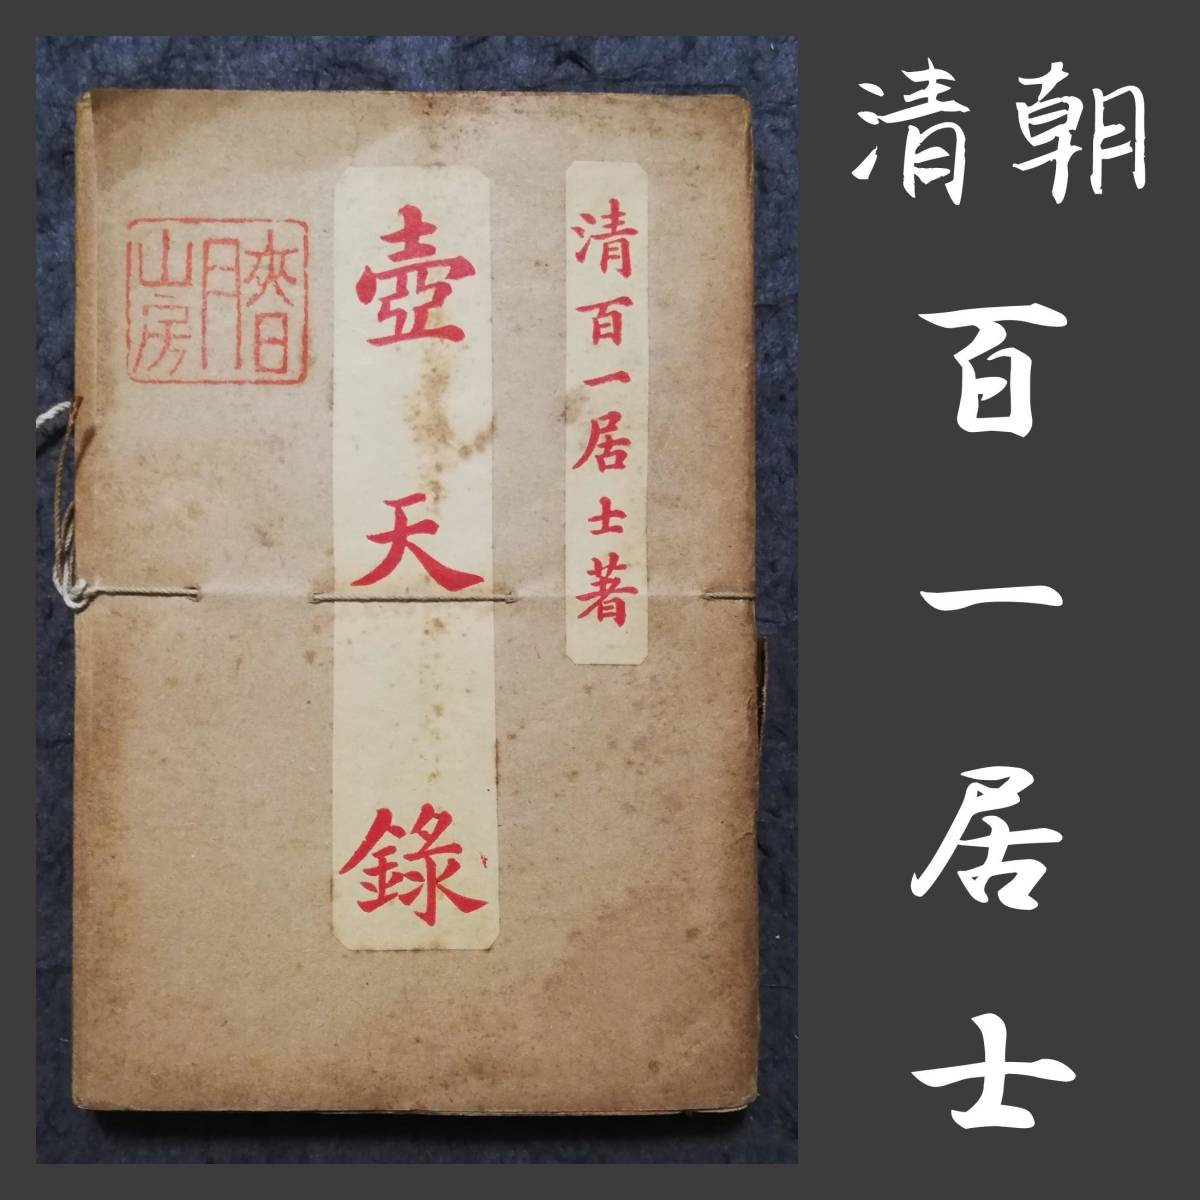 清朝
百一居士
清百一居士著
壺天錄
月
山房